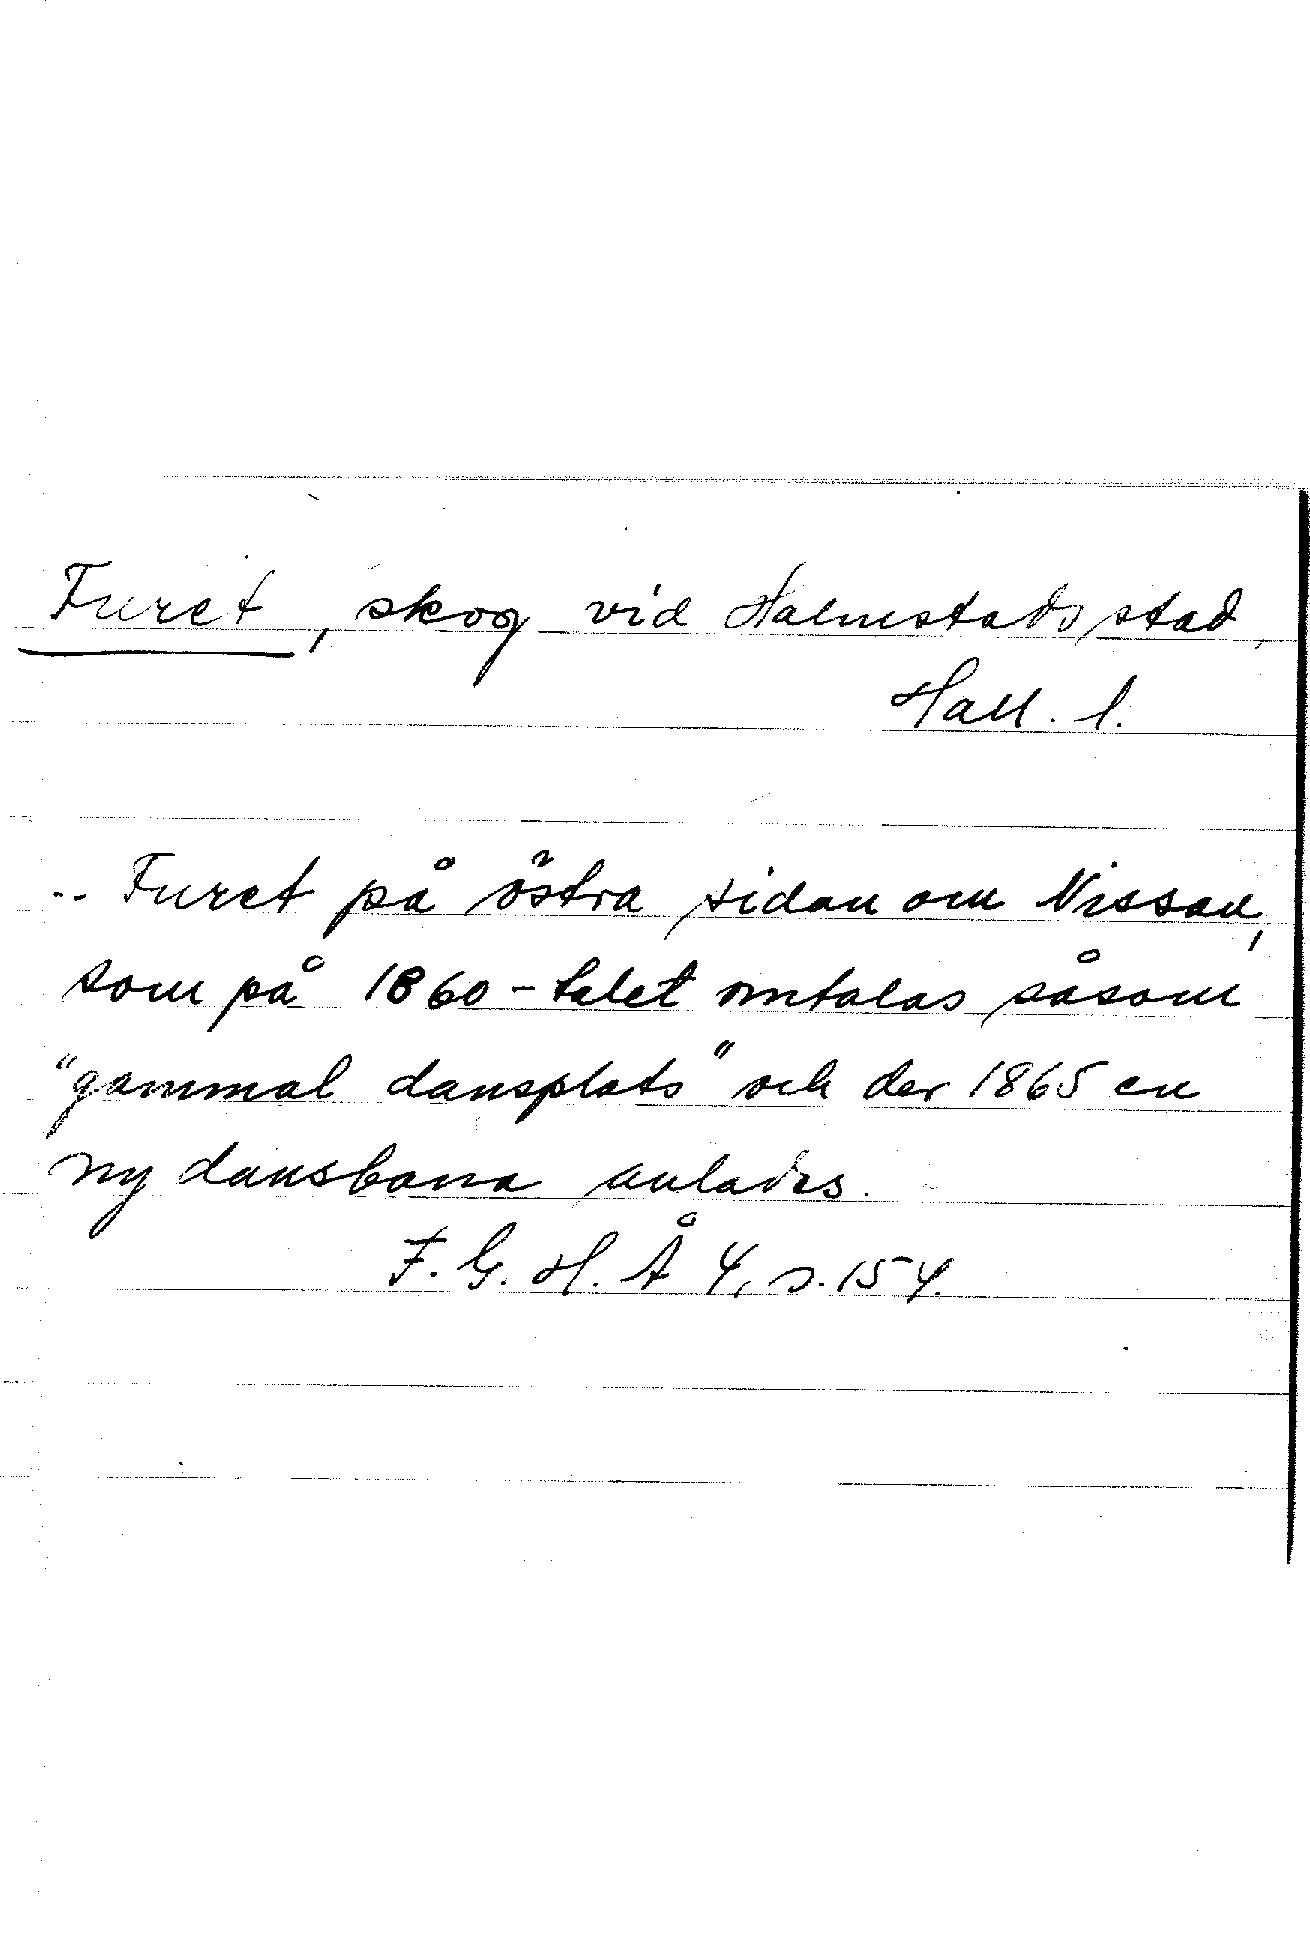 Furet, skog vid Halmstads stad,
Hall. l.
.. Furet på östra sidan om Nissan,
som på 1860-talet omtalas såsom
"gammal dansplats" och der 1865 en
ny dansbana anlades.
F. G. H. Å 4, s. 154.